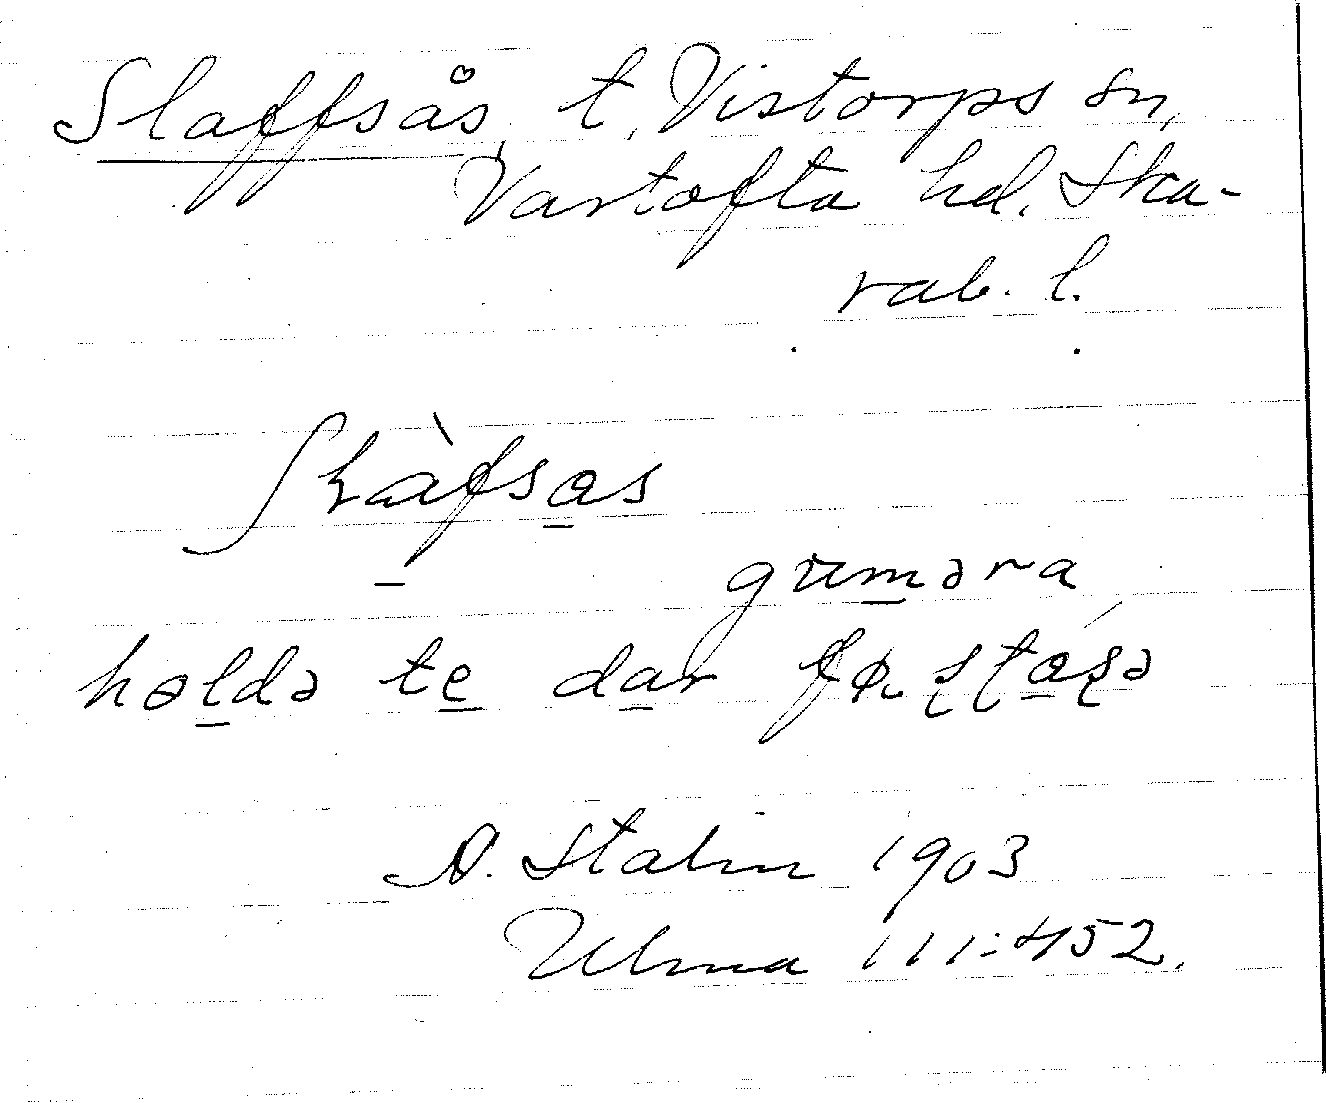 Slaffsås t. Vistorps sn,
Vartofta hd. Ska-
rab. l.
gʀuməra
həldə te dar
A. Stalin 1903
Ulma 111:452.